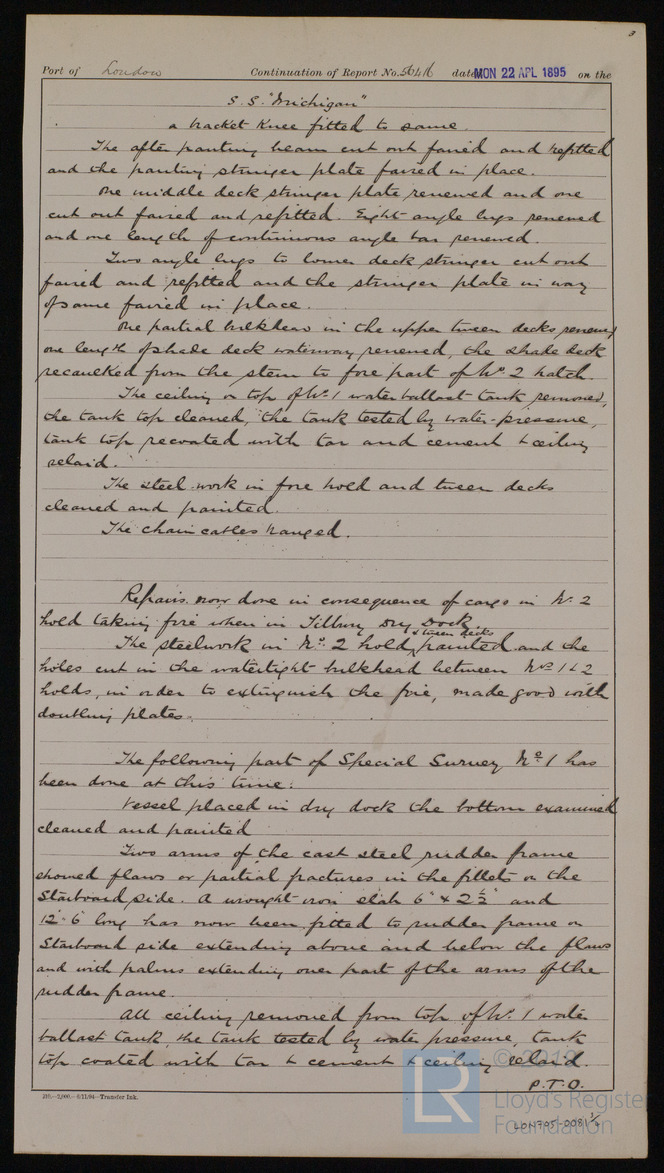 3
Port of London Continuation of Report No. 56416 dated MON 22 APL 1895 on the
S.S. "Michigan"
a bracket knee fitted to same.
The after panting beam cut out faired and refitted
and the panting stringer plate faired in place.
One middle deck stringer plate renewed and one
cut out faired and refitted. Eight angle lugs renewed
and one length of continuous angle bar renewed.
Two angle lugs to lower deck stringer cut out
faired and refitted and the stringer plate in way
of same faired in place.
One partial bulkhead in the upper tween decks renewed
one length of shade deck waterway renewed, the shade deck
recaulked from the stem to fore part of No 2 hatch.
The ceiling on top of No. 1 water ballast tank removed,
the tank top cleaned, the tank tested by water-pressure,
tank top recoated with tar and cement & ceiling
relaid.
The steel work in fore hold and tween decks
cleaned and painted.
The chain cables ranged.
Repairs now done in consequence of cargo in No. 2
hold taking fire when in Tilbury Dry Dock.
The steelwork in No. 2 hold & tween decks painted and the
holes cut in the watertight bulkhead between Nos 1 & 2
holds, in order to extinguish the fire, made good with
doubling plates.
The following part of Special Survey No. 1 has
been done at this time:
Vessel placed in dry dock the bottom examined
cleaned and painted
Two arms of the cast steel rudder frame
showed flaws or partial fractures in the fillets on the
Starboard side. A wrought iron slab 6" x 2½" and
12'-6" long has now been fitted to rudder frame on
Starboard side extending above and below the flaws
and with palms extending over part of the arms of the
rudder frame.
All ceiling removed from top of No. 1 water
ballast tank, the tank tested by water pressure, tank
top coated with tar & cement & ceiling relaid.
P.T.O.
Transfer Ink.
© 2019
LR
Lloyd's Register
Foundation
LON705-0081